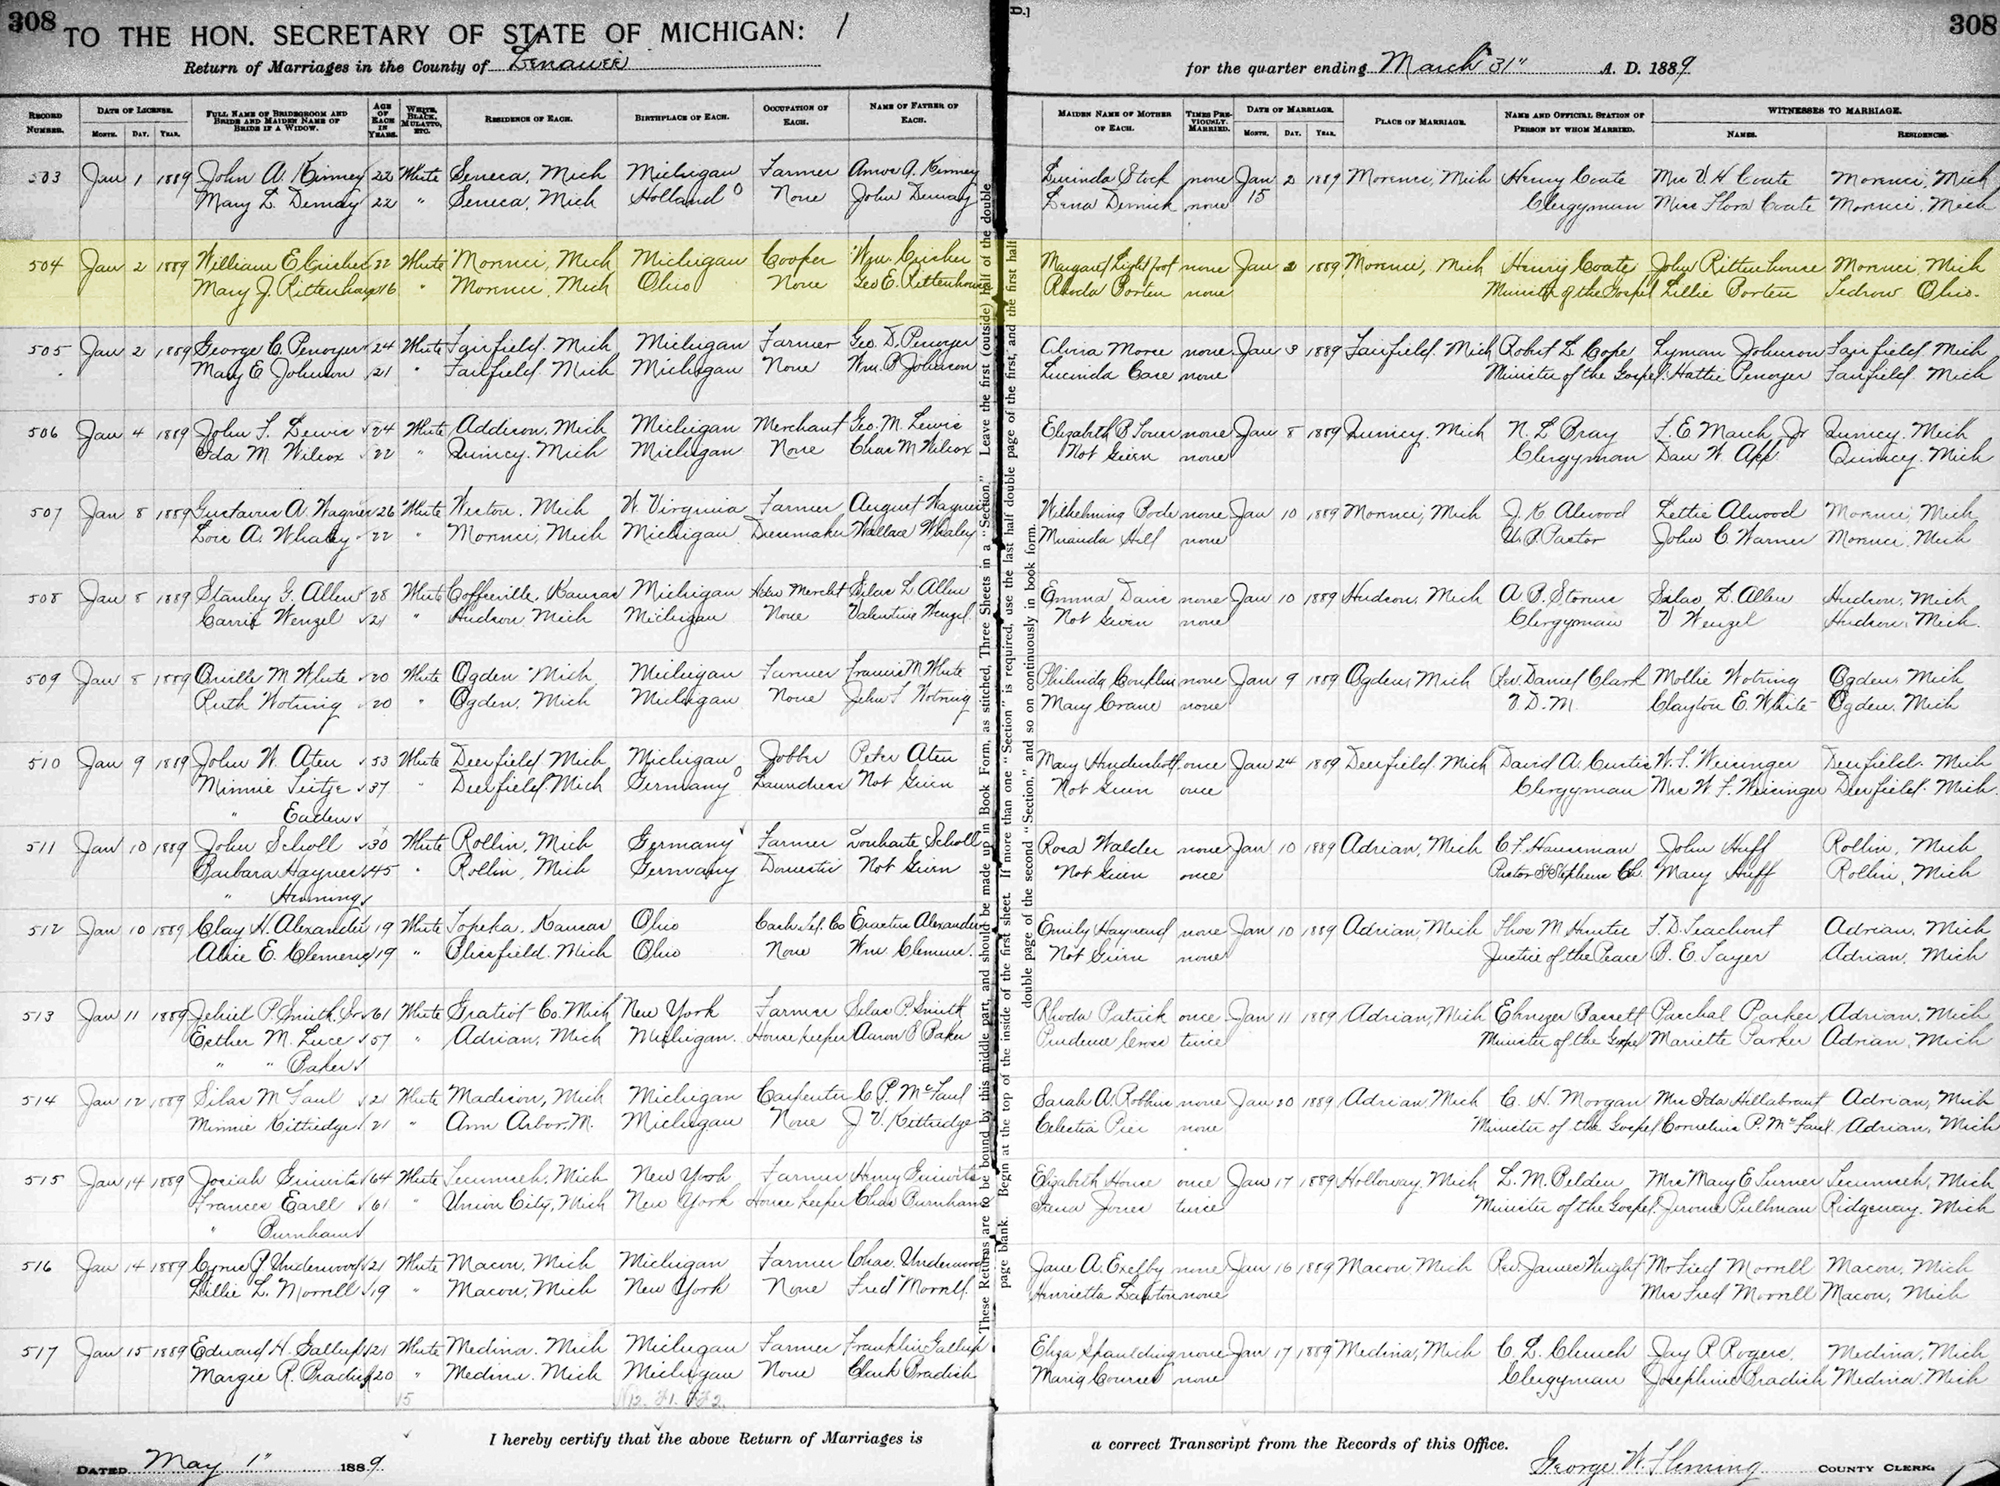 308
308
TO THE HON. SECRETARY OF STATE OF MICHIGAN: 1
Return of Marriages in the County of Lenawee for the quarter ending March 31" A. D. 1889
RECORD NUMBER. DATE OF LICENSE. MONTH. DAY. YEAR. FULL NAME OF BRIDEGROOM AND BRIDE AND MAIDEN NAME OF BRIDE IF A WIDOW. AGE OF EACH IN YEARS. WHITE, BLACK, MULATTO, ETC. RESIDENCE OF EACH. BIRTHPLACE OF EACH. OCCUPATION OF EACH. NAME OF FATHER OF EACH. MAIDEN NAME OF MOTHER OF EACH. TIMES PREVIOUSLY MARRIED. DATE OF MARRIAGE. MONTH. DAY. YEAR. PLACE OF MARRIAGE. NAME AND OFFICIAL STATION OF PERSON BY WHOM MARRIED. WITNESSES TO MARRIAGE. NAMES. RESIDENCES.
503 Jan 1 1889 John A. Kinney 22 White Seneca, Mich Michigan Farmer Amos A. Kinney Lucinda Stock none Jan 2 1889 Morenci, Mich Henry Coate Mrs V. H Coate Morenci, Mich
Mary L. Demay 22 " Seneca, Mich Holland None John Demay Lena none 15 Clergyman Miss Flora Coate Morenci, Mich
504 Jan 2 1889 William E Crisher 22 White Morenci, Mich Michigan Cooper Wm. Crisher Margaret Lightfoot none Jan 2 1889 Morenci, Mich Henry Coate John Rittenhouse Morenci, Mich
Mary J. Rittenhouse 16 " Morenci, Mich Ohio None Geo E. Rittenhouse Rhoda Borten none Minister of the Gospel Lillie Borten Tedrow Ohio.
505 Jan 2 1889 George C. Penoyer 24 White Fairfield. Mich Michigan Farmer Geo. D. Penoyer Alvira Morse none Jan 3 1889 Fairfield. Mich Robert L. Cope Lyman Johnson Fairfield. Mich
Mary E Johnson 21 " Fairfield, Mich Michigan None Wm. P. Johnson Lucinda Case none Minister of the Gospel Hattie Penoyer Fairfield. Mich
506 Jan 4 1889 John F. Lewis 24 White Addison, Mich Michigan Merchant Geo. M. Lewis Elizabeth B. none Jan 8 1889 Quincy. Mich N. L Bray F. E March, Jr Quincy. Mich
Ida M Wilcox 22 " Quincy. Mich Michigan None Chas M Wilcox Not Given none Clergyman Dan W. App Quincy. Mich
507 Jan 8 1889 Gustavus A. Wagner 26 White Weston. Mich W. Virginia Farmer August Wagner none Jan 10 1889 Morenci, Mich J. K Alwood Lettie Alwood Morenci, Mich
Lois A. Whaley 22 " Morenci, Mich Michigan Dressmaker Wallace Whaley Miranda Hill none U. B. Pastor John C. Warner Morenci. Mich
508 Jan 8 1889 Stanley G. Allen 28 White Coffeeville, Kansas Michigan Hdw Mercht Silas L. Allen Emma Davis none Jan 10 1889 Hudson, Mich A. B. Storms Silas L. Allen Hudson, Mich
Carrie Wenzel 21 " Hudson, Mich Michigan None Valentine Wenzel Not Given none Clergyman V Wenzel Hudson, Mich.
509 Jan 8 1889 Orville M White 20 White Ogden Mich Michigan Farmer Francis M White Philinda Conklin none Jan 9 1889 Ogden, Mich Rev. Daniel Clark Mollie Wotring Ogden, Mich
Ruth Wotring 20 " Ogden, Mich Michigan None John S Wotring Mary Crane none V. D. M. Clayton E. White Ogden, Mich
510 Jan 9 1889 John W. Aten 53 White Deerfield, Mich Michigan Jobber Peter Aten Mary Hendershott once Jan 24 1889 Deerfield, Mich David A. Curtis W. F. Weisinger Deerfield. Mich
Minnie Tietje 37 " Deerfield. Mich Germany Laundress Not Given Not Given once Clergyman Mrs W. F. Weisinger Deerfield. Mich.
"
511 Jan 10 1889 John Scholl 30 White Rollin, Mich Germany Farmer Scholl Rosa Walder none Jan 10 1889 Adrian, Mich C. F. Hausman John Huff Rollin, Mich
Barbara Haynes 45 " Rollin, Mich Germany Domestic Not Given Not Given once Pastor St Stephens Ch. Mary Huff Rollin, Mich
" Henning
512 Jan 10 1889 Clay H. Alexander 19 White Topeka, Kansas Ohio Alexander Emily Hayward none Jan 10 1889 Adrian, Mich Thos M. Hunter F. D. Teachout Adrian, Mich
Alice E. Clemens 19 " Blissfield. Mich Ohio None Wm Clemens. Not Given none Justice of the Peace B. E Tayer Adrian, Mich
513 Jan 11 1889 Jehiel P. Smith. Sr 61 White Gratiot Co. Mich New York Farmer Silas P. Smith Rhoda Patrick once Jan 11 1889 Adrian, Mich Ebnezer Parker Adrian, Mich
Esther M. Luce 57 " Adrian, Mich Michigan. Housekeeper Aaron B Baker Prudence Cross twice Minister of the Gospel Mariette Parker Adrian, Mich
" " Baker
514 Jan 12 1889 Silas McFaul 21 White Madison, Mich Michigan Carpenter C P. McFaul Sarah A. Robbins none Jan 20 1889 Adrian, Mich C. H. Morgan Mrs Ida Hillabrant Adrian, Mich
Minnie Kittredge 21 " Ann Arbor. M. Michigan None J V. Kittredge Celestia Pier none Minister of the Gospel Cornelius P. McFaul. Adrian, Mich
515 Jan 14 1889 Josiah 64 White Tecumseh, Mich New York Farmer Henry Elizabeth House once Jan 17 1889 Holloway, Mich L. M. Belden Mrs Mary E Turner Tecumseh, Mich
Frances Earll 61 " Union City, Mich New York House keeper Chas Burnham Irena Jones twice Minister of the Gospel Jerome Pullman Ridgeway. Mich
" Burnham
516 Jan 14 1889 Cyrus J Underwood 21 White Macon, Mich Michigan Farmer Chas. Underwood Jane A. Exelby none Jan 16 1889 Macon, Mich Rev. James Wright Mr Fred Morrell Macon, Mich
Lillie L. Morrell 19 " Macon, Mich New York None Fred Morrell Henrietta none Mrs Fred Morrell Macon, Mich
517 Jan 15 1889 Edward H. Gallup 21 White Medina. Mich Michigan Farmer Franklin Gallup Eliza Spaulding none Jan 17 1889 Medina, Mich C. L. Church Jay R Rogers. Medina, Mich
Margie R. Bradish 20 " Medina. Mich Michigan None Clark Bradish Maria none Clergyman Josephine Bradish Medina. Mich
15
These Returns are to be bound by this middle part, and should be made up in Book Form, as stitched, Three Sheets in a "Section." Leave the first (outside) half of the double
page blank. Begin at the top of the inside of the first sheet. If more than one "Section" is required, use the last half double page of the first, and the first half
double page of the second "Section," and so on continuously in book form.
I hereby certify that the above Return of Marriages is a correct Transcript from the Records of this Office.
DATED May 1" 1889. George W. Fleming COUNTY CLERK.